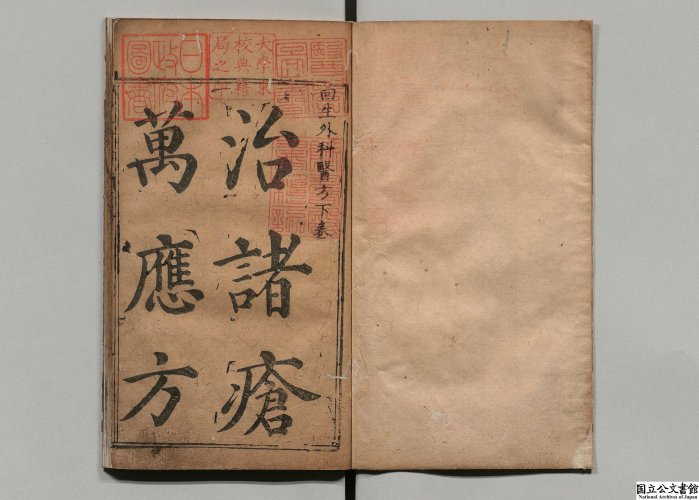 回生外科醫方下卷
治諸瘡
萬應方
大學東
校典籍
局之印
日本
政府
圖書
国立公文書館
National Archives of Japan